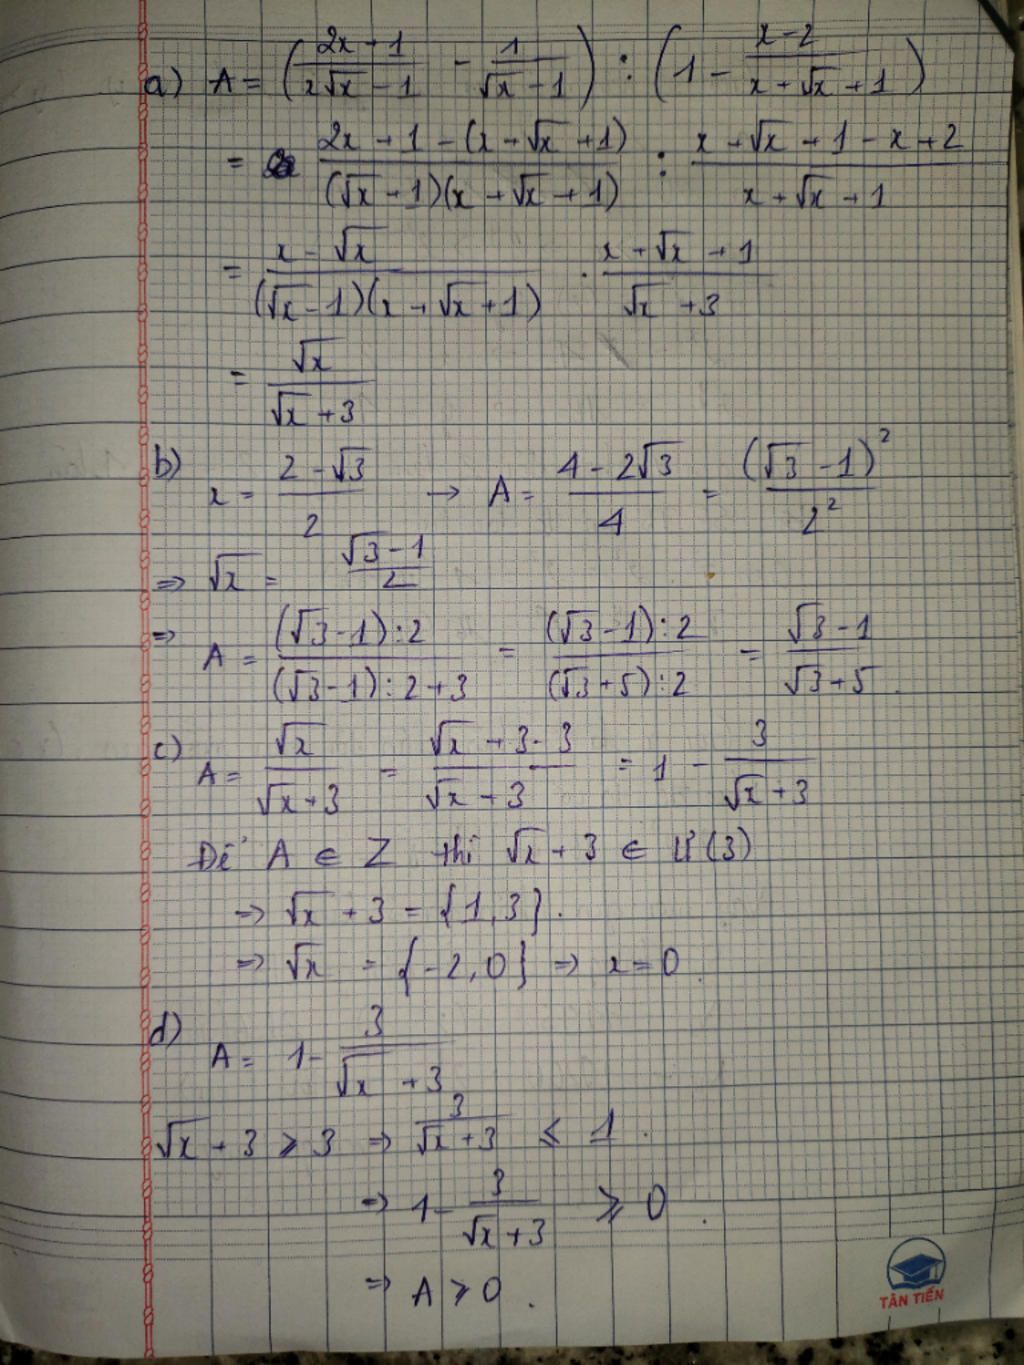 a) A = ( (2x+1)/(x√x - 1) - 1/(√x - 1) ) : ( 1 - (x-2)/(x+√x+1) )
= (2x+1-(x+√x+1))/((√x-1)(x+√x+1)) : (x+√x+1-x+2)/(x+√x+1)
= (x-√x)/((√x-1)(x+√x+1)) · (x+√x+1)/(√x+3)
= √x/(√x+3)
b) x = (2-√3)/2 → A = (4-2√3)/4 = (√3-1)²/2²
⇒ √x = (√3-1)/2
⇒ A = ((√3-1):2)/((√3-1):2+3) = ((√3-1):2)/((√3+5):2) = (√3-1)/(√3+5).
c) A = √x/(√x+3) = (√x+3-3)/(√x+3) = 1 - 3/(√x+3)
Để A ∈ Z thì √x+3 ∈ Ư(3)
⇒ √x + 3 = {1,3}.
⇒ √x = {-2,0} ⇒ x=0.
d) A = 1 - 3/(√x+3)
√x+3 ⩾ 3 ⇒ 3/(√x+3) ⩽ 1.
⇒ 1 - 3/(√x+3) ⩾ 0.
⇒ A ⩾ 0.
TÂN TIẾN